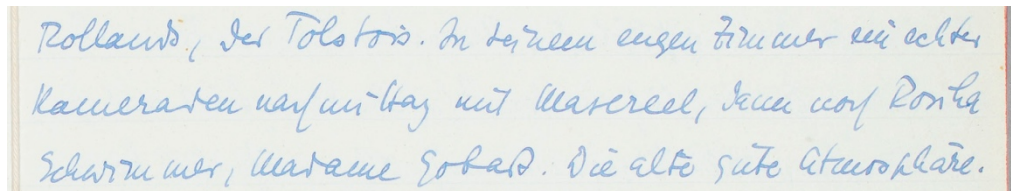 Rollands, der Tolstois. In seinem engen Zimmer ein echter
Kameraden nachmittag mit Masereel, dann noch Rosika
Schwimmer, Madame Gobat. Die alte gute Atmosphäre.